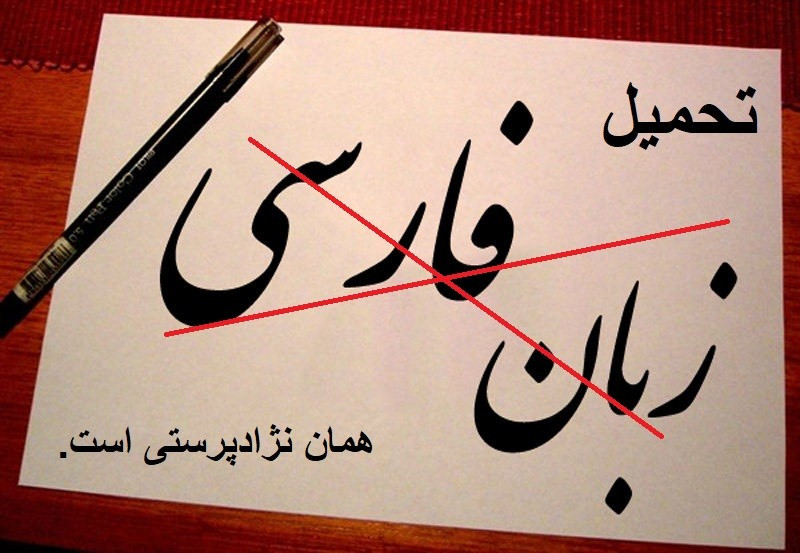 تحمیل
زبان فارسی
همان نژادپرستی است.